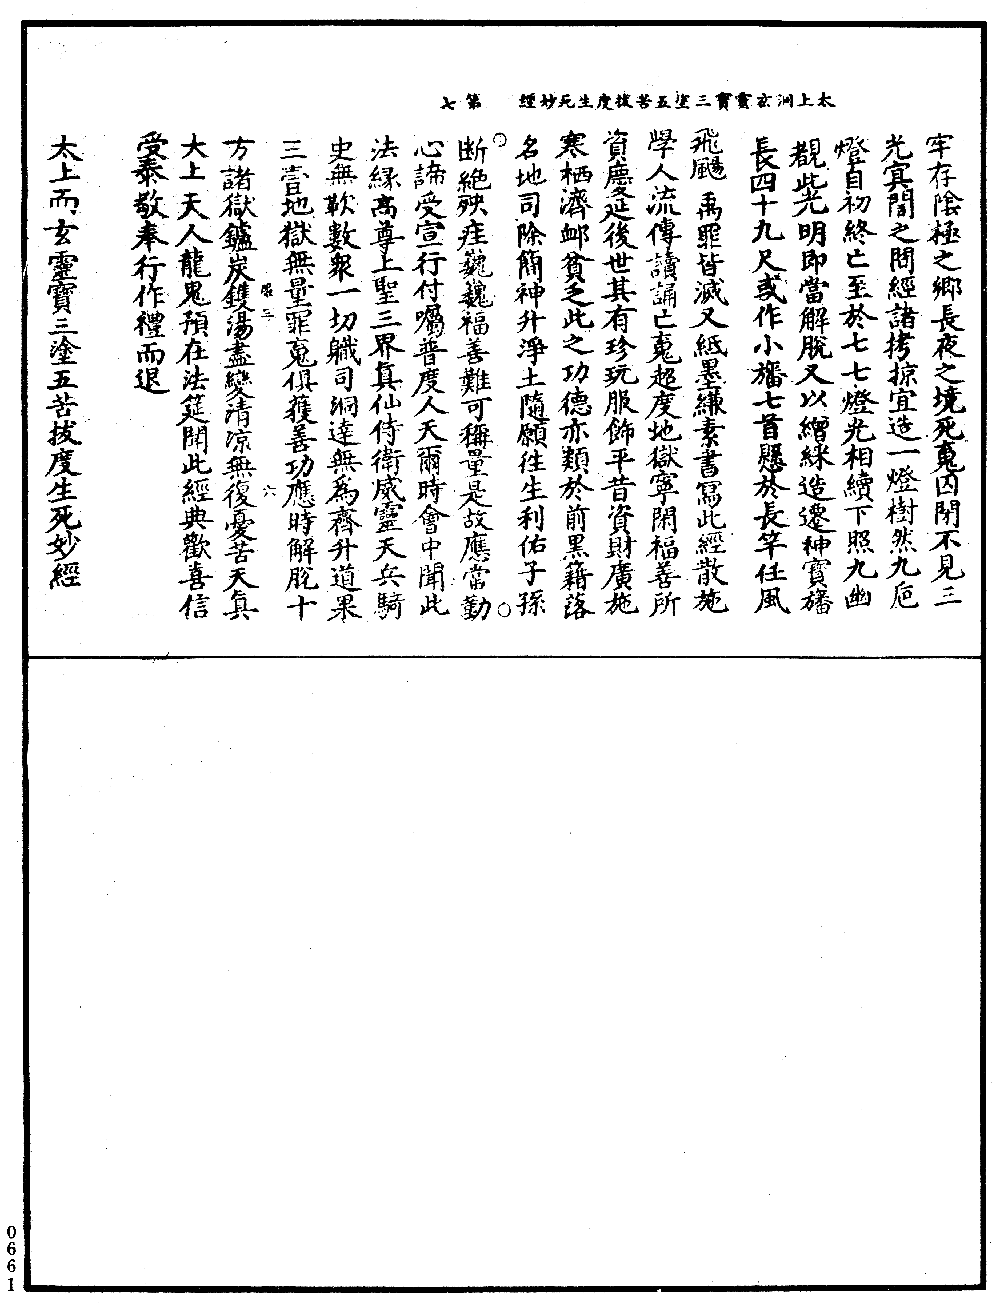 太上洞玄靈寶三塗五苦拔度生死妙經　第七
牢存陰極之鄉長夜之境死䰟囚閉不見三
光冥闇之間經諸拷掠宜造一燈樹然九巵
燈自初終亡至於七七燈光相續下照九幽
覩此光明即當解脫又以繒綵造遷神寶旛
長四十九尺或作小旛七首懸於長竿任風
飛颺 禹罪皆滅又紙墨縑素書寫此經散施
學人流傳讀誦亡䰟超度地獄寧閑福善所
資慶延後世其有珍玩服飾平昔資財廣施
寒栖濟䘏貧乏此之功德亦類於前黑籍落
名地司除簡神升淨土隨願往生利佑子孫
断絶殃疰巍巍福善難可稱量是故應當勤
心諦受宣行付囑普度人天爾時會中聞此
法緣高尊上聖三界真仙侍衛威靈天兵騎
史無軟數衆一切軄司洞達無為齊升道果
三官地獄無量罪䰟俱獲善功應時解脫十
方諸獄鑪炭鑊湯盡變清凉無復憂苦天真
大上天人龍鬼預在法筵聞此經典歡喜信
受泰敬奉行作禮而退
太上而玄靈寶三塗五苦拔度生死妙經
0661